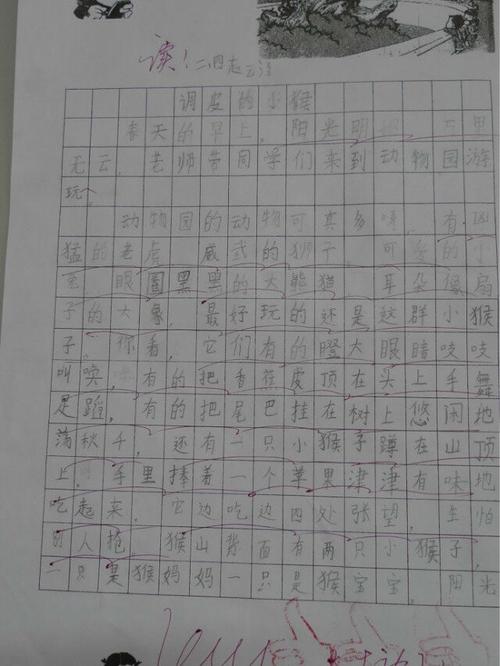 读！二四赵云
调皮的小猴
春天的早上，阳光明 万里
无云，老师带同学们来到动物园游
玩。
动物园的动物可真多呀，有凶
猛的老虎 威武的狮子，可爱的小
兔，眼圈黑黑的大熊猫 耳朵像扇
子的大象，最好玩的还是这群小猴
子。你看，它们有的瞪大眼睛吱吱
叫唤，有的把香蕉皮顶在头上手舞
足蹈，有的把尾巴挂在树上悠闲地
荡秋千，还有一只小猴子蹲在山顶
上，手里捧着一个苹果津津有味地
吃起来，它边吃边四处张望，生怕
别人抢 猴山 面有两只小猴子，
一只是猴妈妈一只是猴宝宝，阳光